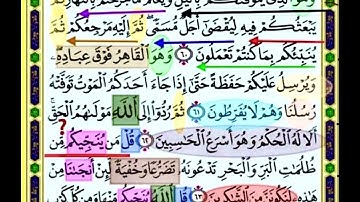 وهو الذى يتوفىكم باليل ويعلم ما جرحتم بالنهار ثم
يَبْعَثُكُمْ فِيهِ لِيُقْضَىٰٓ أَجَلٌ مُّسَمًّى ۖ ثُمَّ إِلَيْهِ مَرْجِعُكُمْ ثُمَّ
يُنَبِّئُكُم بِمَا كُنتُمْ تَعْمَلُونَ ٦٠ وَهُوَ ٱلْقَاهِرُ فَوْقَ عِبَادِهِۦ ۖ
وَيُرْسِلُ عَلَيْكُمْ حَفَظَةً حَتَّىٰٓ إِذَا جَآءَ أَحَدَكُمُ ٱلْمَوْتُ تَوَفَّتْهُ
رُسُلُنَا وَهُمْ لَا يُفَرِّطُونَ ٦١ ثُمَّ رُدُّوٓا۟ إِلَى ٱللَّهِ مَوْلَىٰهُمُ ٱلْحَقِّ ۚ
أَلَا لَهُ ٱلْحُكْمُ وَهُوَ أَسْرَعُ ٱلْحَٰسِبِينَ ٦٢ قُلْ مَن يُنَجِّيكُم مِّن ?
ظُلُمَٰتِ ٱلْبَرِّ وَٱلْبَحْرِ تَدْعُونَهُۥ تَضَرُّعًا وَخُفْيَةً لَّئِنْ أَنجَىٰنَا مِنْ
هَٰذِهِۦ لَنَكُونَنَّ مِنَ ٱلشَّٰكِرِينَ ٦٣ قُلِ ٱللَّهُ يُنَجِّيكُم مِّنْهَا وَمِن كُلِّ كَرْبٍ